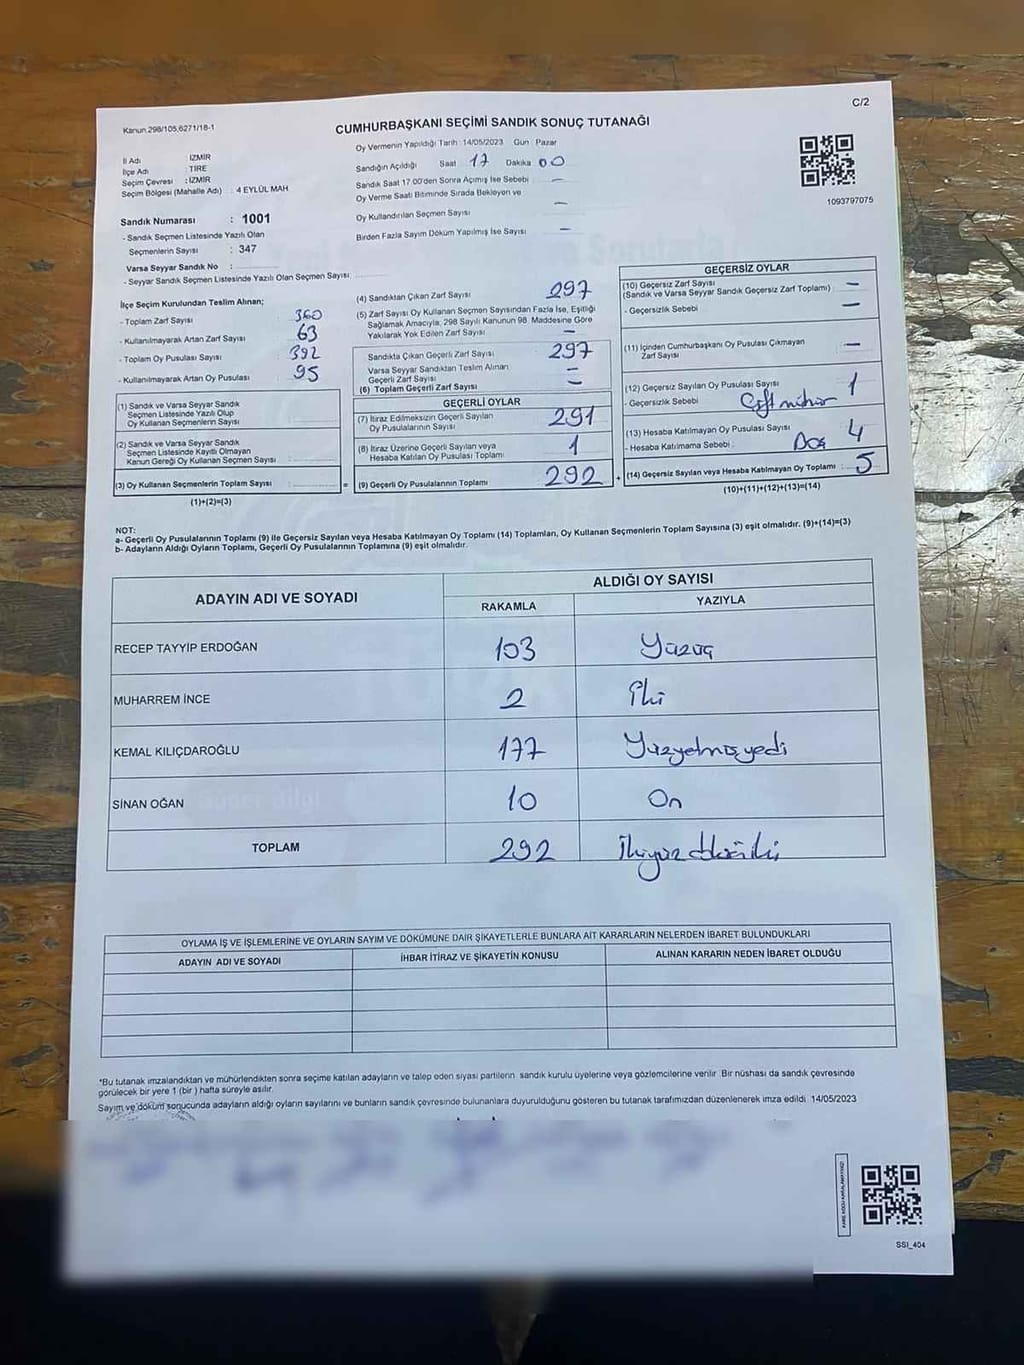 C/2
Kanun 298/105,6271/18-1
CUMHURBAŞKANI SEÇİMİ SANDIK SONUÇ TUTANAĞI
Oy Vermenin Yapıldığı Tarih : 14/05/2023 Gün : Pazar
İl Adı : İZMİR
İlçe Adı : TİRE
Seçim Çevresi : İZMİR
Seçim Bölgesi (Mahalle Adı) : 4 EYLÜL MAH
Sandık Numarası : 1001
- Sandık Seçmen Listesinde Yazılı Olan
Seçmenlerin Sayısı : 347
Varsa Seyyar Sandık No :
- Seyyar Sandık Seçmen Listesinde Yazılı Olan Seçmen Sayısı
Sandığın Açıldığı Saat 17 Dakika 00
Sandık Saat 17.00'den Sonra Açımış İse Sebebi —
Oy Verme Saati Bitiminde Sırada Bekleyen ve
Oy Kullandırılan Seçmen Sayısı —
Birden Fazla Sayım Döküm Yapılmış İse Sayısı —
1093797075
İlçe Seçim Kurulundan Teslim Alınan;
- Toplam Zarf Sayısı : 360
- Kullanılmayarak Artan Zarf Sayısı : 63
- Toplam Oy Pusulası Sayısı : 392
- Kullanılmayarak Artan Oy Pusulası : 95
(1) Sandık ve Varsa Seyyar Sandık
Seçmen Listesinde Yazılı Olup
Oy Kullanan Seçmenlerin Sayısı
(2) Sandık ve Varsa Seyyar Sandık
Seçmen Listesinde Kayıtlı Olmayan
Kanun Gereği Oy Kullanan Seçmen Sayısı
(3) Oy Kullanan Seçmenlerin Toplam Sayısı :
(1)+(2)=(3)
(4) Sandıktan Çıkan Zarf Sayısı 297
(5) Zarf Sayısı Oy Kullanan Seçmen Sayısından Fazla İse, Eşitliği
Sağlamak Amacıyla, 298 Sayılı Kanunun 98. Maddesine Göre
Yakılarak Yok Edilen Zarf Sayısı —
Sandıkta Çıkan Geçerli Zarf Sayısı 297
Varsa Seyyar Sandıktan Teslim Alınan
Geçerli Zarf Sayısı —
(6) Toplam Geçerli Zarf Sayısı —
GEÇERLİ OYLAR
(7) İtiraz Edilmeksizin Geçerli Sayılan
Oy Pusulalarının Sayısı 291
(8) İtiraz Üzerine Geçerli Sayılan veya
Hesaba Katılan Oy Pusulası Toplamı 1
= (9) Geçerli Oy Pusulalarının Toplamı 292
GEÇERSİZ OYLAR
(10) Geçersiz Zarf Sayısı —
(Sandık ve Varsa Seyyar Sandık Geçersiz Zarf Toplamı)
- Geçersizlik Sebebi —
(11) İçinden Cumhurbaşkanı Oy Pusulası Çıkmayan
Zarf Sayısı —
(12) Geçersiz Sayılan Oy Pusulası Sayısı 1
- Geçersizlik Sebebi
(13) Hesaba Katılmayan Oy Pusulası Sayısı 4
- Hesaba Katılmama Sebebi : Boş
+ (14) Geçersiz Sayılan veya Hesaba Katılmayan Oy Toplamı 5
(10)+(11)+(12)+(13)=(14)
NOT:
a- Geçerli Oy Pusulalarının Toplamı (9) ile Geçersiz Sayılan veya Hesaba Katılmayan Oy Toplamı (14) Toplamları, Oy Kullanan Seçmenlerin Toplam Sayısına (3) eşit olmalıdır. (9)+(14)=(3)
b- Adayların Aldığı Oyların Toplamı, Geçerli Oy Pusulalarının Toplamına (9) eşit olmalıdır.
ADAYIN ADI VE SOYADI
ALDIĞI OY SAYISI
RAKAMLA YAZIYLA
RECEP TAYYİP ERDOĞAN 103 Yüzüç
MUHARREM İNCE 2 İki
KEMAL KILIÇDAROĞLU 177 Yüzyetmişyedi
SİNAN OĞAN 10 On
TOPLAM 292 İkiyüz doksaniki
OYLAMA İŞ VE İŞLEMLERİNE VE OYLARIN SAYIM VE DÖKÜMÜNE DAİR ŞİKAYETLERLE BUNLARA AİT KARARLARIN NELERDEN İBARET BULUNDUKLARI
ADAYIN ADI VE SOYADI İHBAR İTİRAZ VE ŞİKAYETİN KONUSU ALINAN KARARIN NEDEN İBARET OLDUĞU
*Bu tutanak imzalandıktan ve mühürlendikten sonra seçime katılan adayların ve talep eden siyasi partilerin sandık kurulu üyelerine veya gözlemcilerine verilir. Bir nüshası da sandık çevresinde
görülecek bir yere 1 (bir) hafta süreyle asılır.
Sayım ve döküm sonucunda adayların aldığı oyların sayılarını ve bunların sandık çevresinde bulunanlara duyurulduğunu gösteren bu tutanak tarafımızdan düzenlenerek imza edildi. 14/05/2023
SSI_404